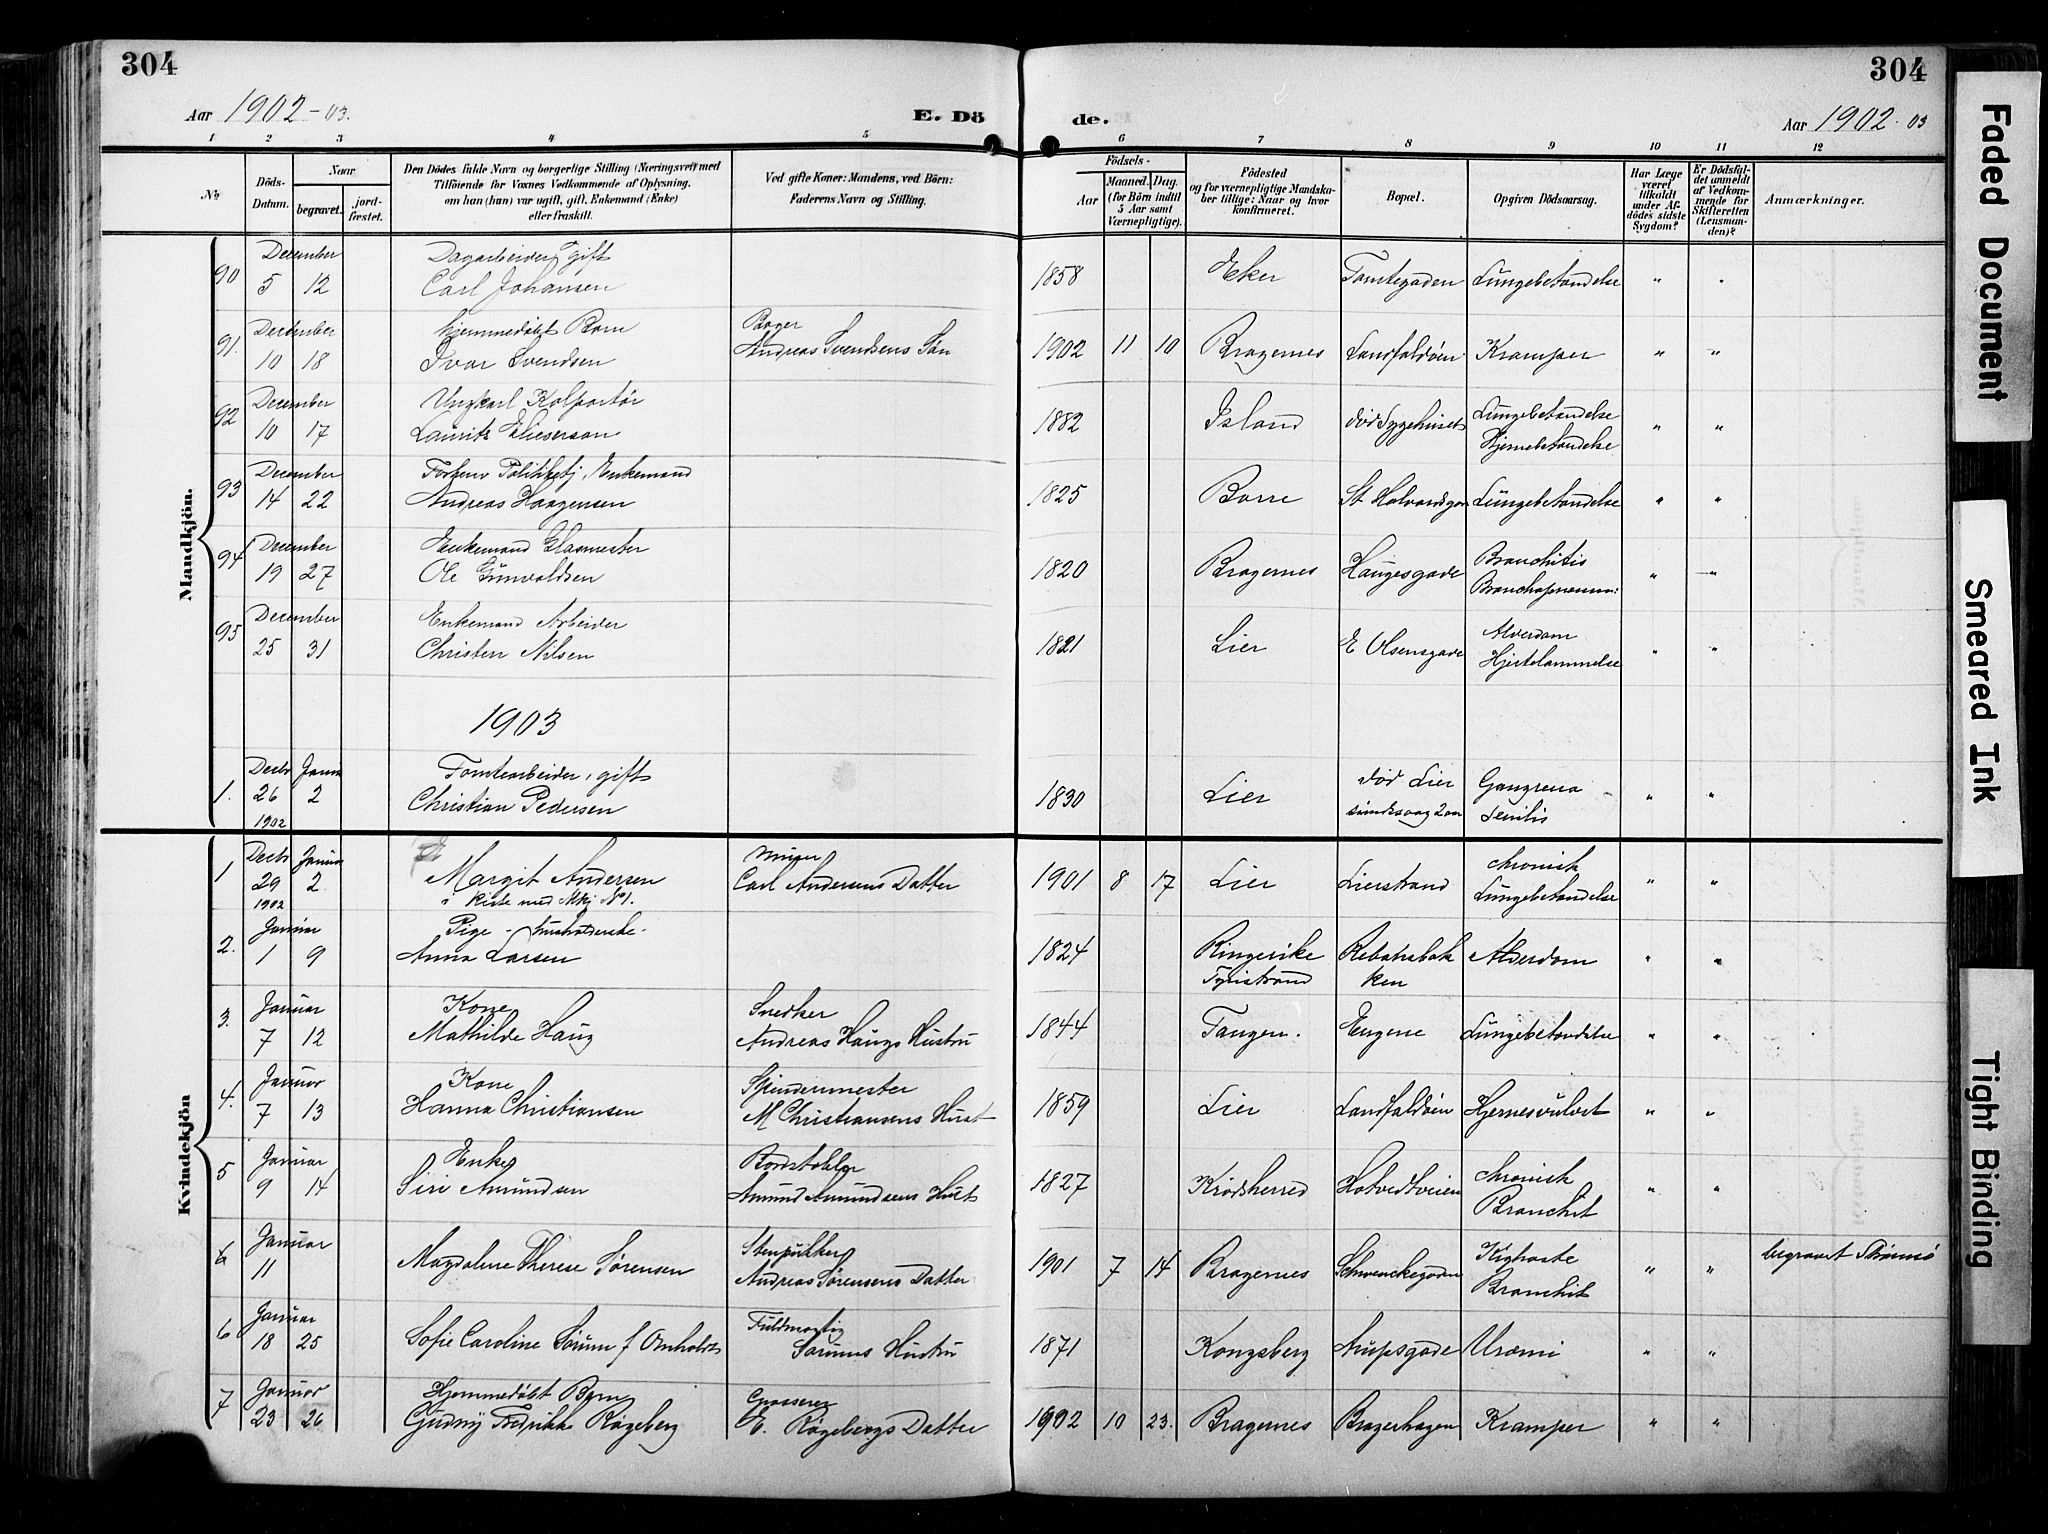 304
304
Aar 1902-03.
E. Dö
de.
Aar 1902.03
1 2 3 4 5 6 7 8 9 10 11 12
No
Döds-Datum.
Naar
begravet.
jord-fæstet.
Den Dödes fulde Navn og borgerlige Stilling (Næringsvei) med
Tilföiende for Voxnes Vedkommende af Oplysning,
om han (hun) var ugift, gift, Enkemand (Enke)
eller fraskilt.
Ved gifte Koner: Mandens, ved Börn:
Faderens Navn og Stilling.
Födsels-
Aar
Maaned. Dag.
(for Börn indtil
5 Aar samt
Værnepligtige).
Födested
og for værnepligtige Mandska-
ber tillige: Naar og hvor
konfirmeret.
Bopæl.
Opgiven Dödsaarsag.
Har Læge
været
tilkaldt
under Af-
dödes sidste
Sygdom?
Er Dödsfal-
det anmeldt
af Vedkom-
mende for
Skifteretten
(Lensman-
den)?
Anmærkninger.
Mandkjön.
90 December Dagarbeider gift
5 12 Carl Johansen 1858 Eker Tomtegaden Lungebetændelse " "
91. December hjemmedøbt Barn Bager
10 18 Ivar Svendsen Andreas Svendsens Søn 1902 11 10 Bragernes Landfaldøen Kramper " "
92 December Ungkarl Kolportør Lungebetændelse
10 17 Lauritz Elieserson 1882 Island død Sygehuset Hjernebetændelse " "
93 December Forhenv Politibetj, Enkemand
14 22 Andreas Haagensen 1825 Borre St Halvardsgan Lungebetændelse " "
94 December Enkemand Glasmester Bronchitis
19 27 Ole Gunvaldsen 1820 Bragernes Haugesgade Bronchopneumo: " "
95 December Enkemand Arbeider Alderdom
25 31 Christen Nilsen 1821 Lier E Olsensgade Hjertelammelse " "
1903
Decbr Januar Tomtearbeider, gift død Lier Gangrena
1. 26 2 Christian Pedersen 1830 Lier senilis " "
1902
Kvindekjön
1 Decbr Januar Murer chronisk
29 2 Margit Andersen Carl Andersens Datter 1901 8 17 Lier Lierstrand Lungebetændelse " "
1902 i Kiste med Mkj No 1.
2. Januar Pige - husholderske - Ringerike Rebatsbak
1 9 Anna Larsen 1824 Tyristrand ken Alderdom " "
3. Januar Kone Snedker
7 12 Mathilde Haug Andreas Haugs Hustru 1844 Tangen. Engene Lungebetændelse " "
4. Januar Kone Spindermester
7 13 Hanna Christiansen M Christiansens Hust 1859 Lier Landfaldøen Hjernesvulst " "
5 Januar Enke chronisk
9 14 Siri Amundsen Amund Amundsens Hust 1827 Krødsherred Hotvedtveien Bronchit " "
6 Januar Kighoste
11 Magdalene Therese Sørensen Andreas Sørensens Datter 1901 7 14 Bragernes Schwenckegaden Bronchit " " begravet Strømsø
6 Januar Fuldmægtig
18 25 Sofie Caroline Sørum f Omholdt Sørums Hustru 1871 Kongsberg Arupsgade Uræmi " "
7 Januar Hjemmedøbt Barn Grosserer
23 26 Gudny Fredrikke Røgeberg E. Røgebergs Datter 1902 10 23. Bragernes Bragerhagen Kramper " "
Faded Document
Smeared Ink
Tight Binding